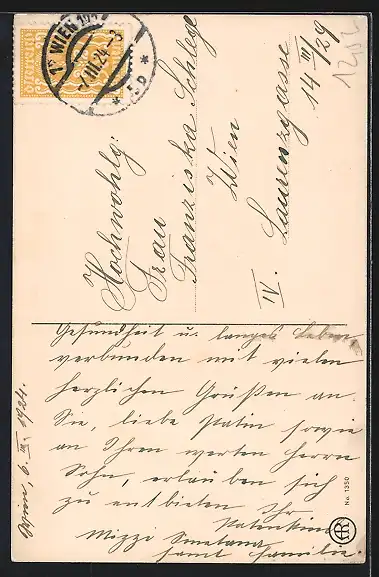 1f WIEN
7.III.24
ÖSTERREICH
1202
Hochwohlg.
Frau
Franziska Schlege
Wien
IV. Laurenzgasse
14 III/29
Wien, 6. III. 1924.
Gesundheit u. langes Leben,
verbunden mit vielen
herzlichen Grüßen an
Sie, liebe Patin sowie
an Ihren werten Herrn
Sohn, erlauben sich
zu entbieten Ihr
Patenkind
Mizzi Smetana
samt Familie.
No. 1350